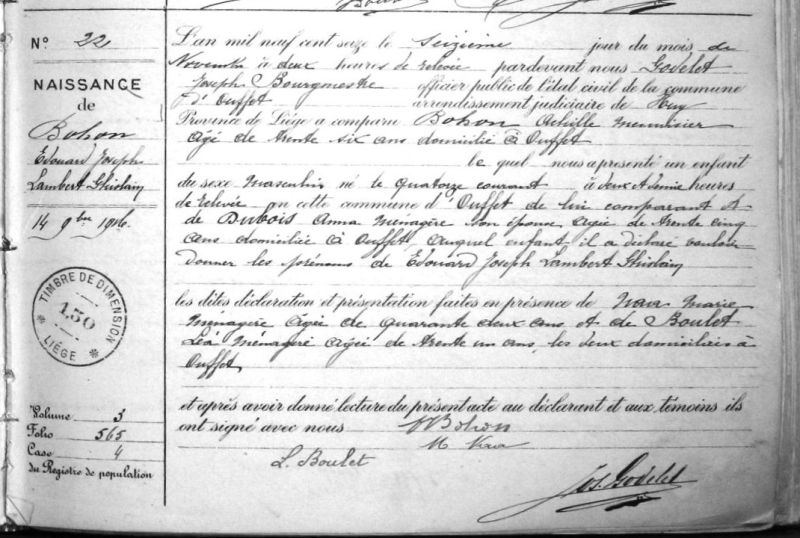 N° 22
NAISSANCE
de
Bohon
Edouard Joseph
Lambert Ghislain
14 9bre 1916.
TIMBRE DE DIMENSION
1.50
LIÉGE
Volume 3
Folio 565
Case 4
du Registre de population
L'an mil neuf cent seize le seizième jour du mois de
Novembre à deux heures de relevée pardevant nous Godelet
Joseph Bourgmestre officier public de l'état civil de la commune
d'Ouffet arrondissement judiciaire de Huy
Province de Liège a comparu Bohon Achille menuisier
âgé de trente six ans domicilié à Ouffet
lequel nous a présenté un enfant
du sexe masculin né le quatorze courant à deux et demie heures
de relevée en cette commune d'Ouffet de lui comparant et
de Dubois Anna ménagère son épouse, âgée de trente cinq
ans domiciliée à Ouffet, auquel enfant il a déclaré vouloir
donner les prénoms de Edouard Joseph Lambert Ghislain
les dites déclaration et présentation faites en présence de Marie
Ménagère âgée de quarante deux ans et de Boulet
Léa Ménagère âgée de trente un ans, les deux domiciliées à
Ouffet
et après avoir donné lecture du présent acte au déclarant et aux témoins ils
ont signé avec nous Bohon
M
L. Boulet
Jos. Godelet